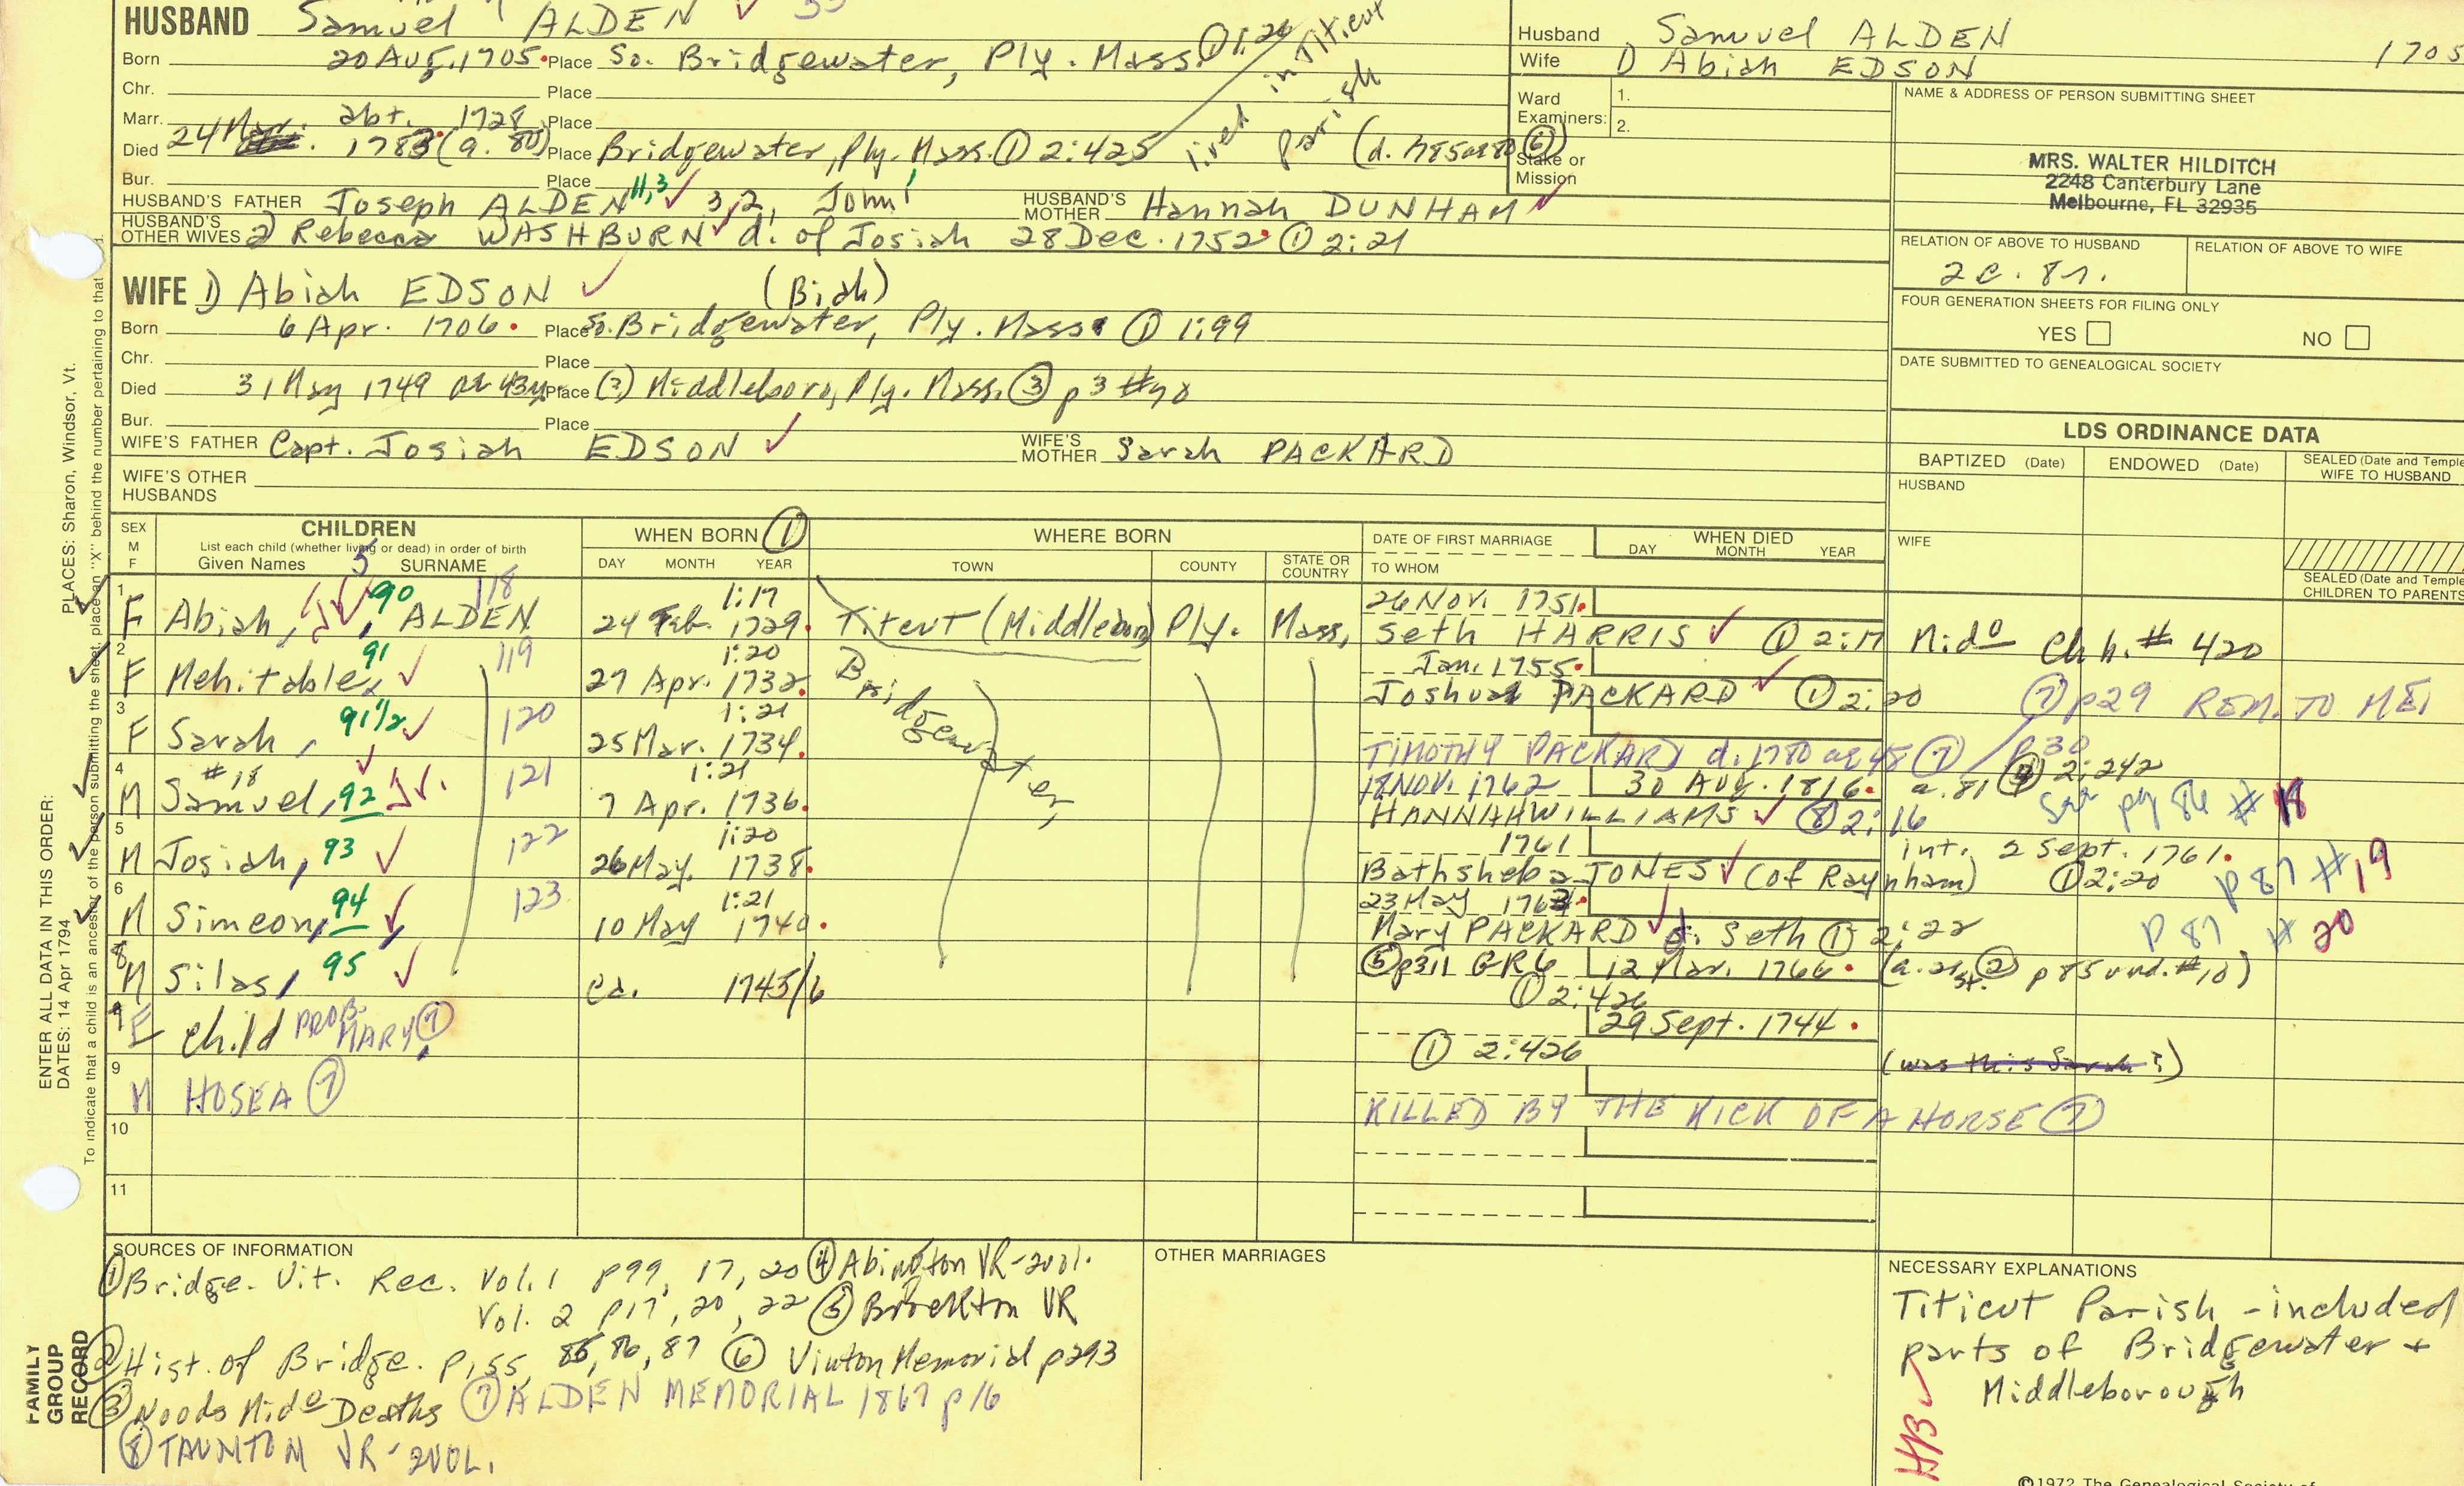 HUSBAND Samuel ALDEN
Born 20 Aug. 1705 Place So. Bridgewater, Ply. Mass. ① 1:26
lived in Titicut Parish
Chr. Place
Marr. abt. 1728 Place
Died 24 Mar. 1783 (a. 80) Place Bridgewater, Ply. Mass. ① 2:425 (d. 1785 ae 80 ⑥)
Bur. Place
HUSBAND'S FATHER Joseph ALDEN 11,3 3,2, John 1 HUSBAND'S MOTHER Hannah DUNHAM
HUSBAND'S OTHER WIVES 2) Rebecca WASHBURN d. of Josiah 28 Dec. 1752 ① 2:21
WIFE 1) Abiah EDSON (Biah)
Born 6 Apr. 1706 Place So. Bridgewater, Ply. Mass. ① 1:99
Chr. Place
Died 31 May 1749 ae 43y Place (?) Middleboro, Ply. Mass. ③ p3 #70
Bur. Place
WIFE'S FATHER Capt. Josiah EDSON WIFE'S MOTHER Sarah PACKARD
WIFE'S OTHER HUSBANDS
Husband Samuel ALDEN 1705
Wife 1) Abiah EDSON
Ward Examiners: 1.
2.
Stake or Mission
NAME & ADDRESS OF PERSON SUBMITTING SHEET
MRS. WALTER HILDITCH
2248 Canterbury Lane
Melbourne, FL 32935
RELATION OF ABOVE TO HUSBAND RELATION OF ABOVE TO WIFE
2c. 8r.
FOUR GENERATION SHEETS FOR FILING ONLY
YES NO
DATE SUBMITTED TO GENEALOGICAL SOCIETY
LDS ORDINANCE DATA
BAPTIZED (Date) ENDOWED (Date) SEALED (Date and Temple) WIFE TO HUSBAND
HUSBAND
WIFE
SEALED (Date and Temple) CHILDREN TO PARENTS
SEX M F CHILDREN WHEN BORN ① WHERE BORN DATE OF FIRST MARRIAGE WHEN DIED
List each child (whether living or dead) in order of birth
Given Names SURNAME DAY MONTH YEAR TOWN COUNTY STATE OR COUNTRY TO WHOM DAY MONTH YEAR
1 F Abiah, 90 ALDEN 118 24 Feb. 1729 1:17 Titicut (Middleboro) Ply. Mass. 26 Nov. 1751 Seth HARRIS ① 2:17 Mido Ch h. # 420
2 F Mehitable, 91 119 27 Apr. 1732 1:20 Bridgewater Jan. 1755 Joshua PACKARD ① 2:20 ⑦ p29 REM. TO ME.
3 F Sarah, 91 1/2 120 25 Mar. 1734 1:21 TIMOTHY PACKARD d. 1780 ae 48 ⑦ p30
4 M #18 Samuel, 92 Jr. 121 7 Apr. 1736 1:21 18 NOV. 1762 HANNAH WILLIAMS ⑧ 2:16 30 AUG. 1816 a. 81 ④ 2:242 See pg 86 # 18
5 M Josiah, 93 122 26 May. 1738 1:20 1761 Bathsheba JONES (of Raynham) int. 2 Sept. 1761 ① 2:20 p 87 # 19
6 M Simeon, 94 123 10 May 1740 1:21 23 May 1763 Mary PACKARD d. Seth ① 2:22 p 87 # 20
8 M Silas, 95 ca. 1745/6 ⑤ p311 GR6 12 Mar. 1766 (a. 21 ② p 85 und. #10)
① 2:426
F Child PROB. MARY ⑦ 29 Sept. 1744
① 2:426 (was this Sarah?)
9 M HOSEA ⑦ KILLED BY THE KICK OF A HORSE ⑦
10
11
SOURCES OF INFORMATION
① Bridge. Vit. Rec. Vol. 1 p99, 17, 20 ④ Abington VR-2vol.
Vol. 2 p17, 20, 22 ⑤ Brockton VR
② Hist. of Bridge. p. 55, 85, 86, 87 ⑥ Vinton Memorial p293
③ Woods Mido Deaths ⑦ ALDEN MEMORIAL 1867 p16
⑧ TAUNTON VR-2VOL.
OTHER MARRIAGES
NECESSARY EXPLANATIONS
Titicut Parish - included
parts of Bridgewater +
Middleborough
HB
©1972 The Genealogical Society of
FAMILY GROUP RECORD
ENTER ALL DATA IN THIS ORDER:
DATES: 14 Apr 1794
PLACES: Sharon, Windsor, Vt.
To indicate that a child is an ancestor of the person submitting the sheet, place an "X" behind the number pertaining to that